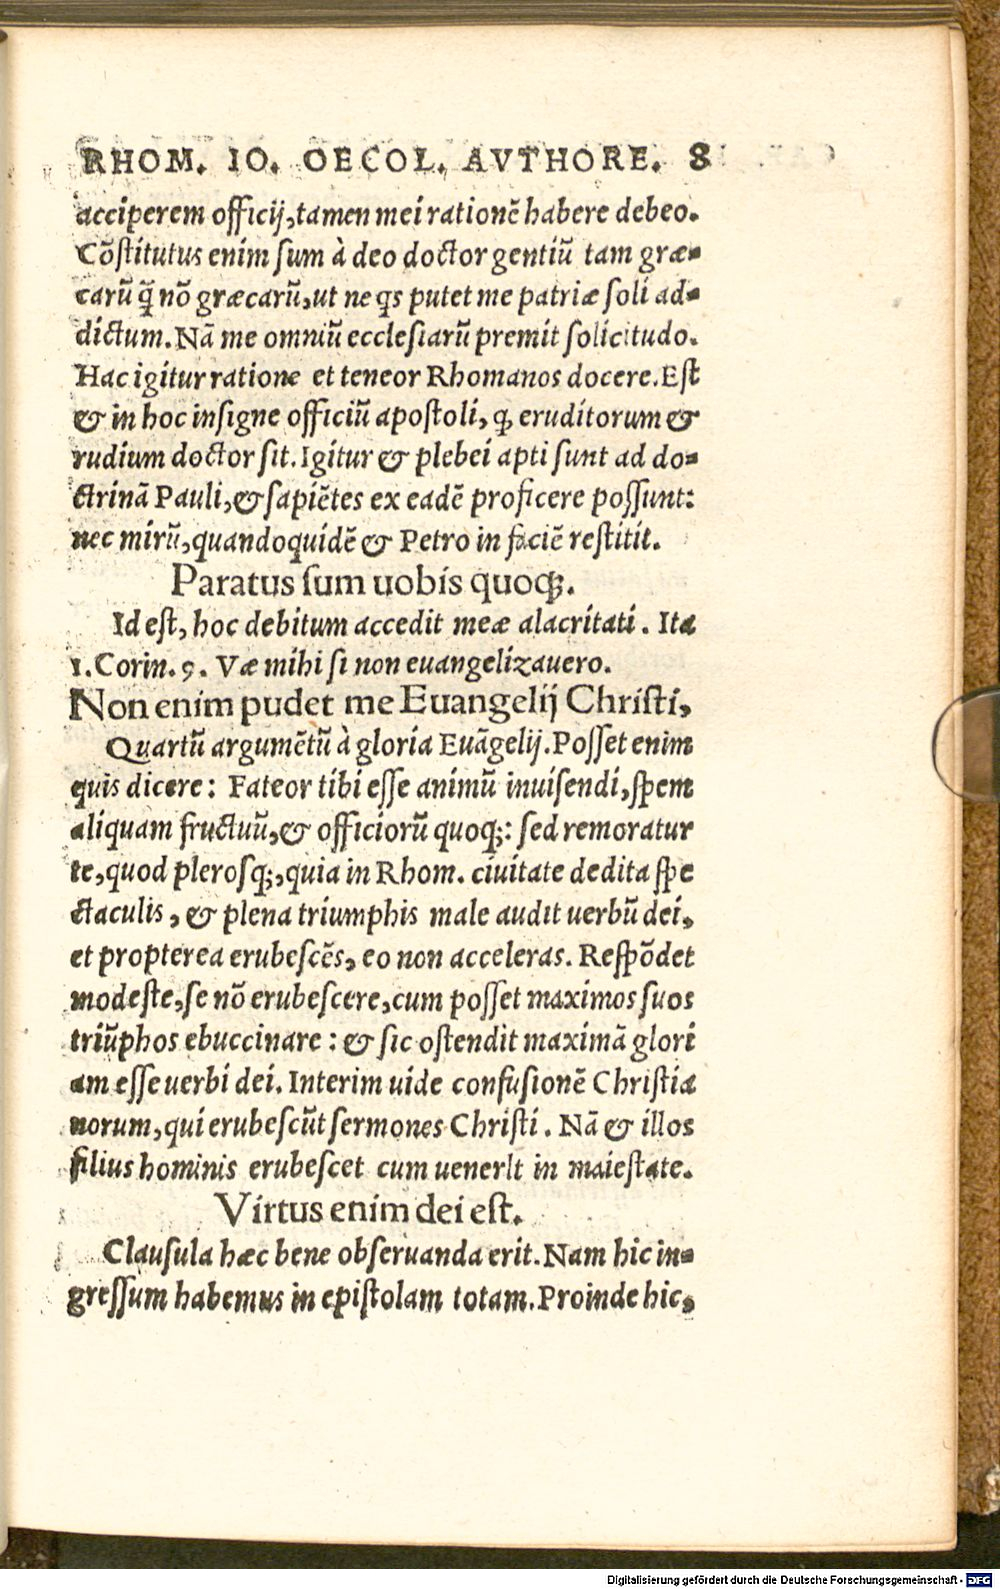 RHOM. IO. OECOL. AVTHORE. 8
acciperem officij, tamen mei rationē habere debeo.
Cōstitutus enim sum à deo doctor gentiū tam græ-
carū q̃ nō græcarū, ut ne qs putet me patriæ soli ad-
dictum. Nā me omniū ecclesiarū premit solicitudo.
Hac igitur ratione et teneor Rhomanos docere. Est
& in hoc insigne officiū apostoli, ꝙ eruditorum &
rudium doctor sit. Igitur & plebei apti sunt ad do-
ctrinā Pauli, & sapiētes ex eadē proficere possunt:
nec mirū, quandoquidē & Petro in faciē restitit.
Paratus sum uobis quoqꝫ.
Id est, hoc debitum accedit meæ alacritati. Ita
1. Corin. 9. Væ mihi si non euangelizauero.
Non enim pudet me Euangelij Christi,
Quartū argumētū à gloria Euāgelij. Posset enim
quis dicere: Fateor tibi esse animū inuisendi, spem
aliquam fructuū, & officiorū quoqꝫ: sed remoratur
te, quod plerosqꝫ, quia in Rhom. ciuitate dedita spe
ctaculis, & plena triumphis male audit uerbū dei,
et propterea erubescēs, eo non acceleras. Respōdet
modeste, se nō erubescere, cum posset maximos suos
triūphos ebuccinare: & sic ostendit maximā glori
am esse uerbi dei. Interim uide confusionē Christia
norum, qui erubescūt sermones Christi. Nā & illos
filius hominis erubescet cum uenerIt in maiestate.
Virtus enim dei est.
Clausula hæc bene obseruanda erit. Nam hic in-
gressum habemus in epistolam totam. Proinde hic,
Digitalisierung gefördert durch die Deutsche Forschungsgemeinschaft - DFG